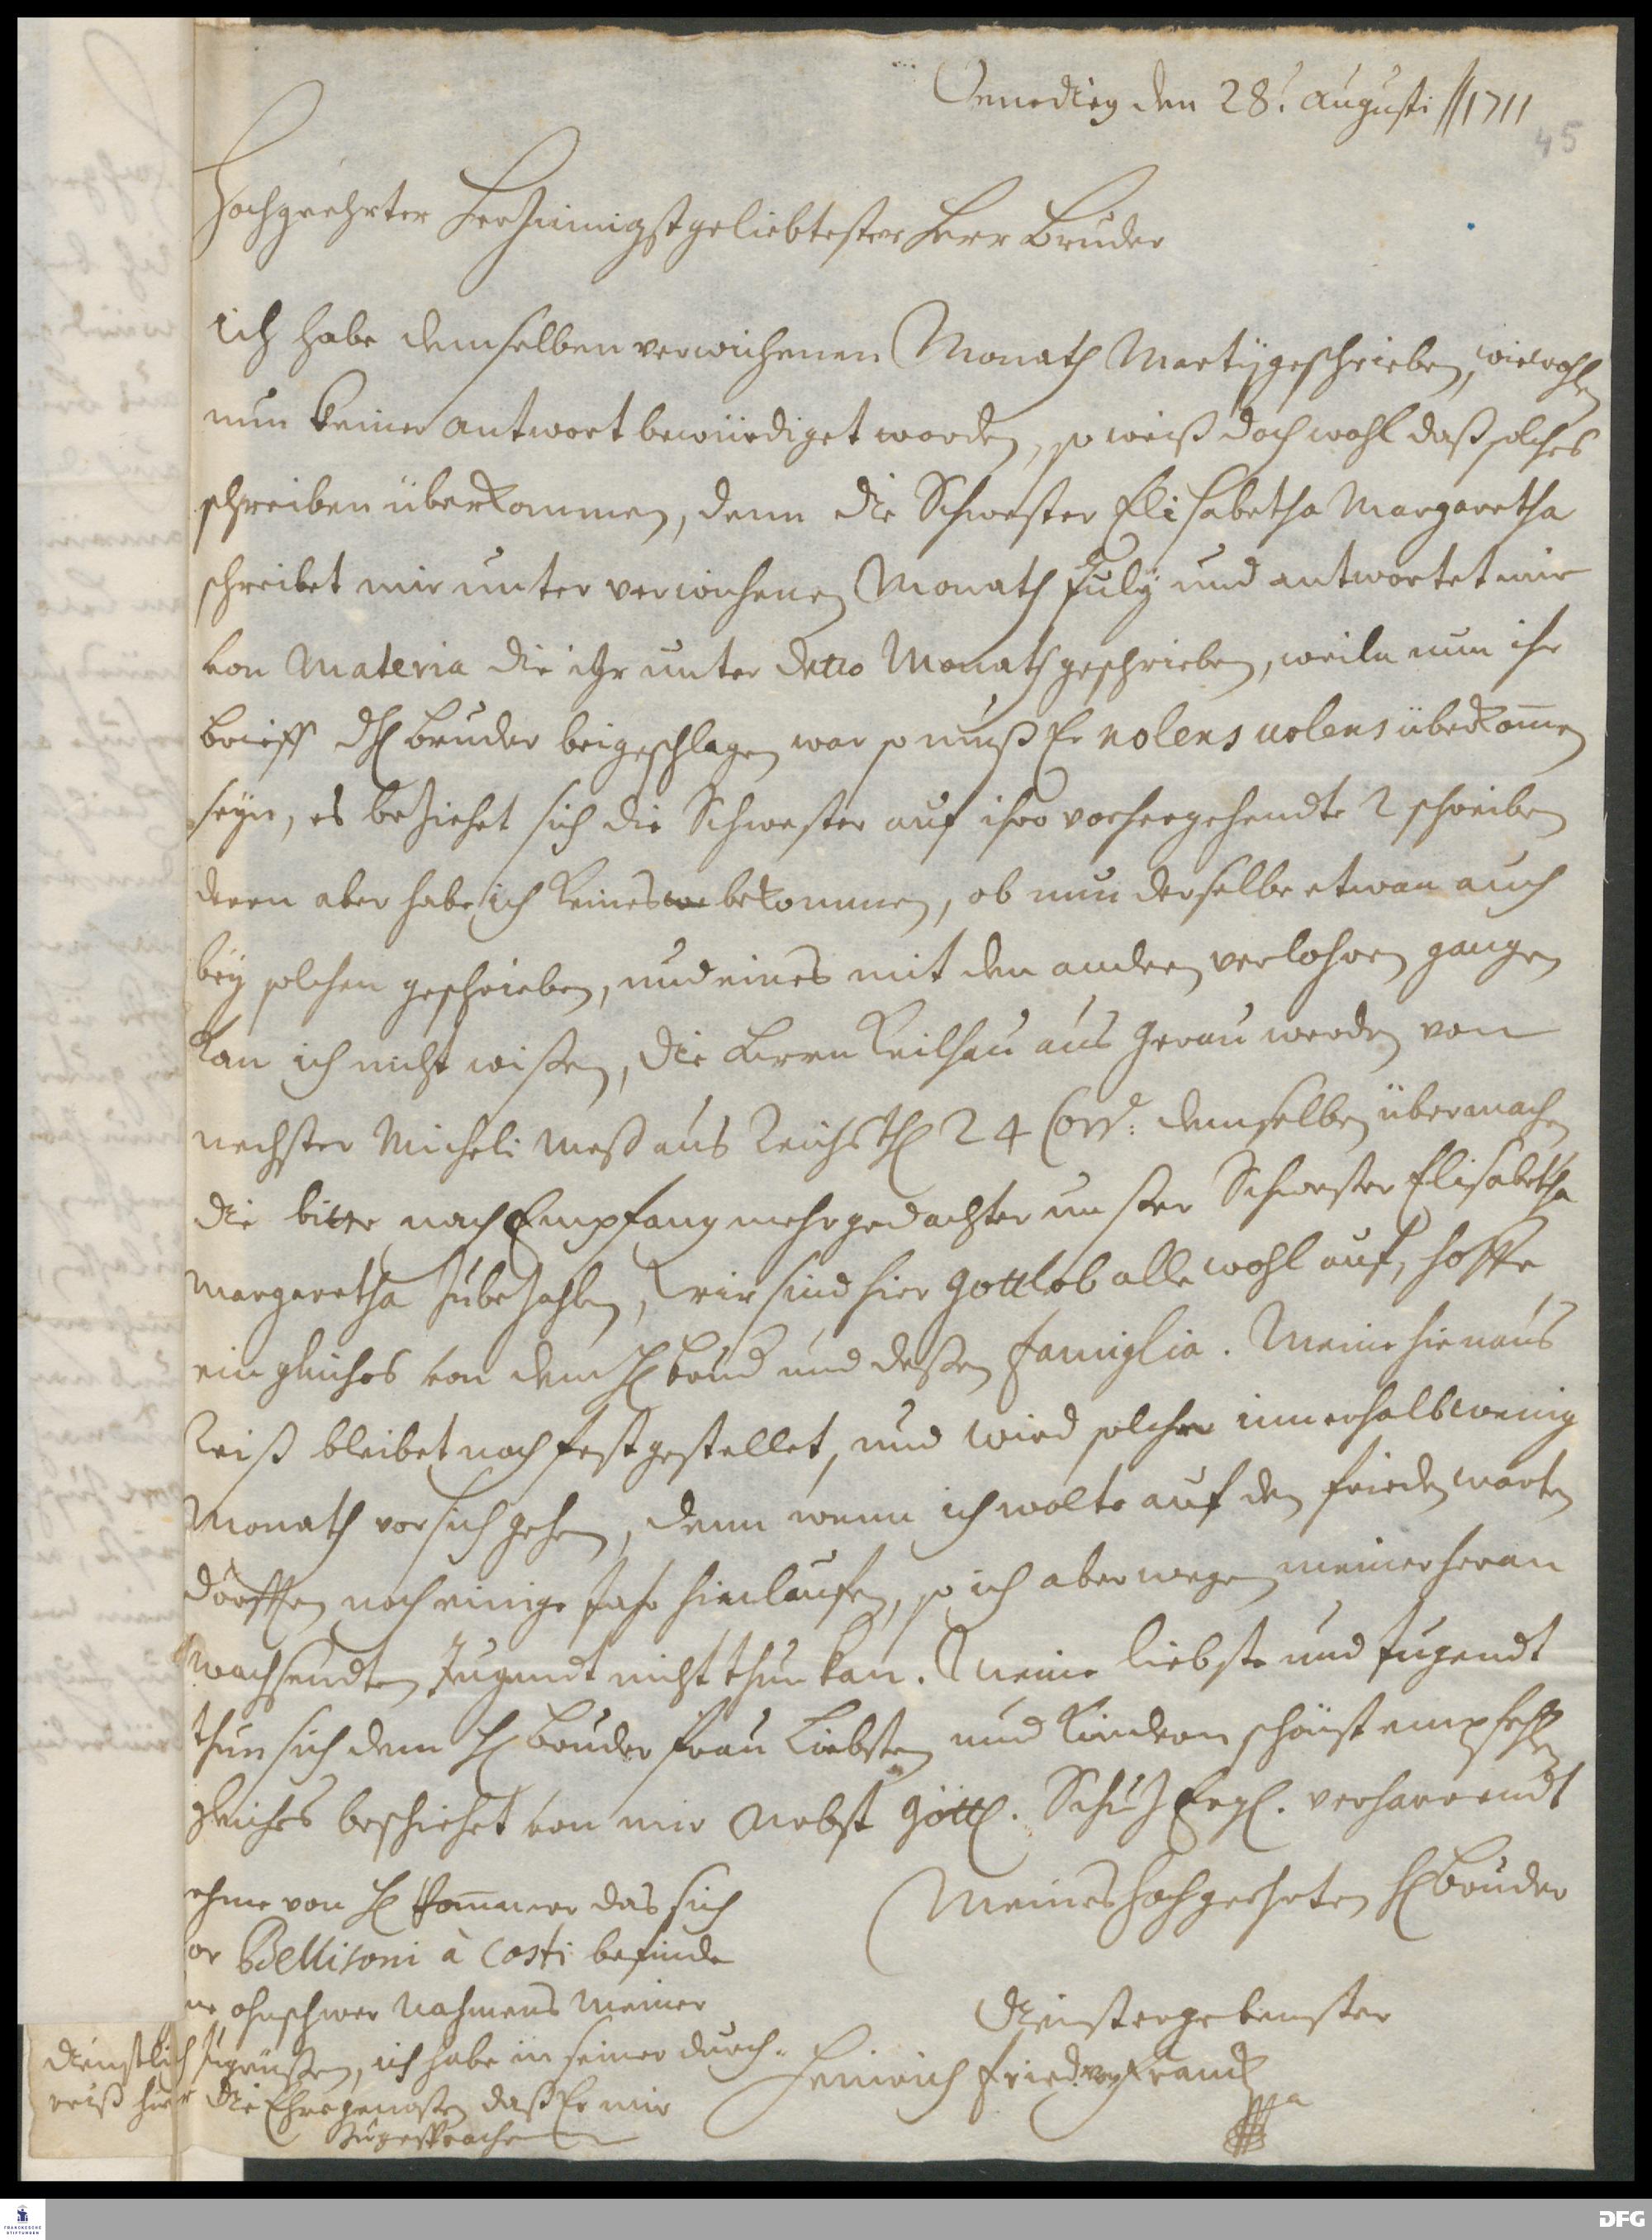 Venedieg den 28.t Augusti // 1711
45
Hochgeehrter Herzinnigstgeliebtester Herr Bruder
Ich habe demselben verwichenen Monath Martÿ geschrieben, wiewohlen
nun keiner antwort bewürdiget worden, so weiß doch wohl daß solches
schreiben überkommen, denn die Schwester Elisabetha Margaretha
schreibet mir unter verwichenen Monath Julÿ und antwortet mir
von Materia die ihr unter detto Monath geschrieben, weiln nun ihr
brieff dH bruder beigeschlagen war so muß Er nolens uolens überkomēn
seÿn, es beziehet sich die Schwester auf ihre vorhergehendte 2 schreiben
deren aber habe ich keines bekommen, ob nun derselbe etwan auch
beÿ solchen geschrieben, und eines mit den andern verlohren gangen
kan ich nicht wißen, die Herrn Keilhau aus Gerau werden von
nechster Micheli Meß aus Reichsth 24 Corr: demselben übermachen
die bitte nach Empfang mehrgedachter unster Schwester Elisabetha
Margaretha zubezahlen, wir sind hier Gottlob alle wohl auf, hoffe
ein gleiches von dem H brud und deßen famiglia. Meine hienaus
Reiß bleibet noch festgestellet, und wird solche innerhalb wenig
Monath vor sich gehen, denn wenn ich wolte auf den frieden warten
dörfften noch einige Jahr hinlaufen, so ich aber wegen meiner heran
wachsendten Jugendt nicht thun kan. Meine liebste und Jugendt
thun sich dem H Bruder frau Liebsten und Kindern schönst empfehlen
gleiches beschiehet von mir nebst Göttl. Schuz Ergl. verharrendt
Meines Hochgeehrten H Bruder
ehme von H das sich
or Bellisoni à Costi befinde
ne ohnschwer Nahmens Meiner
dienstlich zugrüßen, ich habe in seiner durch-
reiß hier die Ehre genoßen daß Er mir
zugesprochen
Dienstergebenster
Heinrich Fried. von Franck